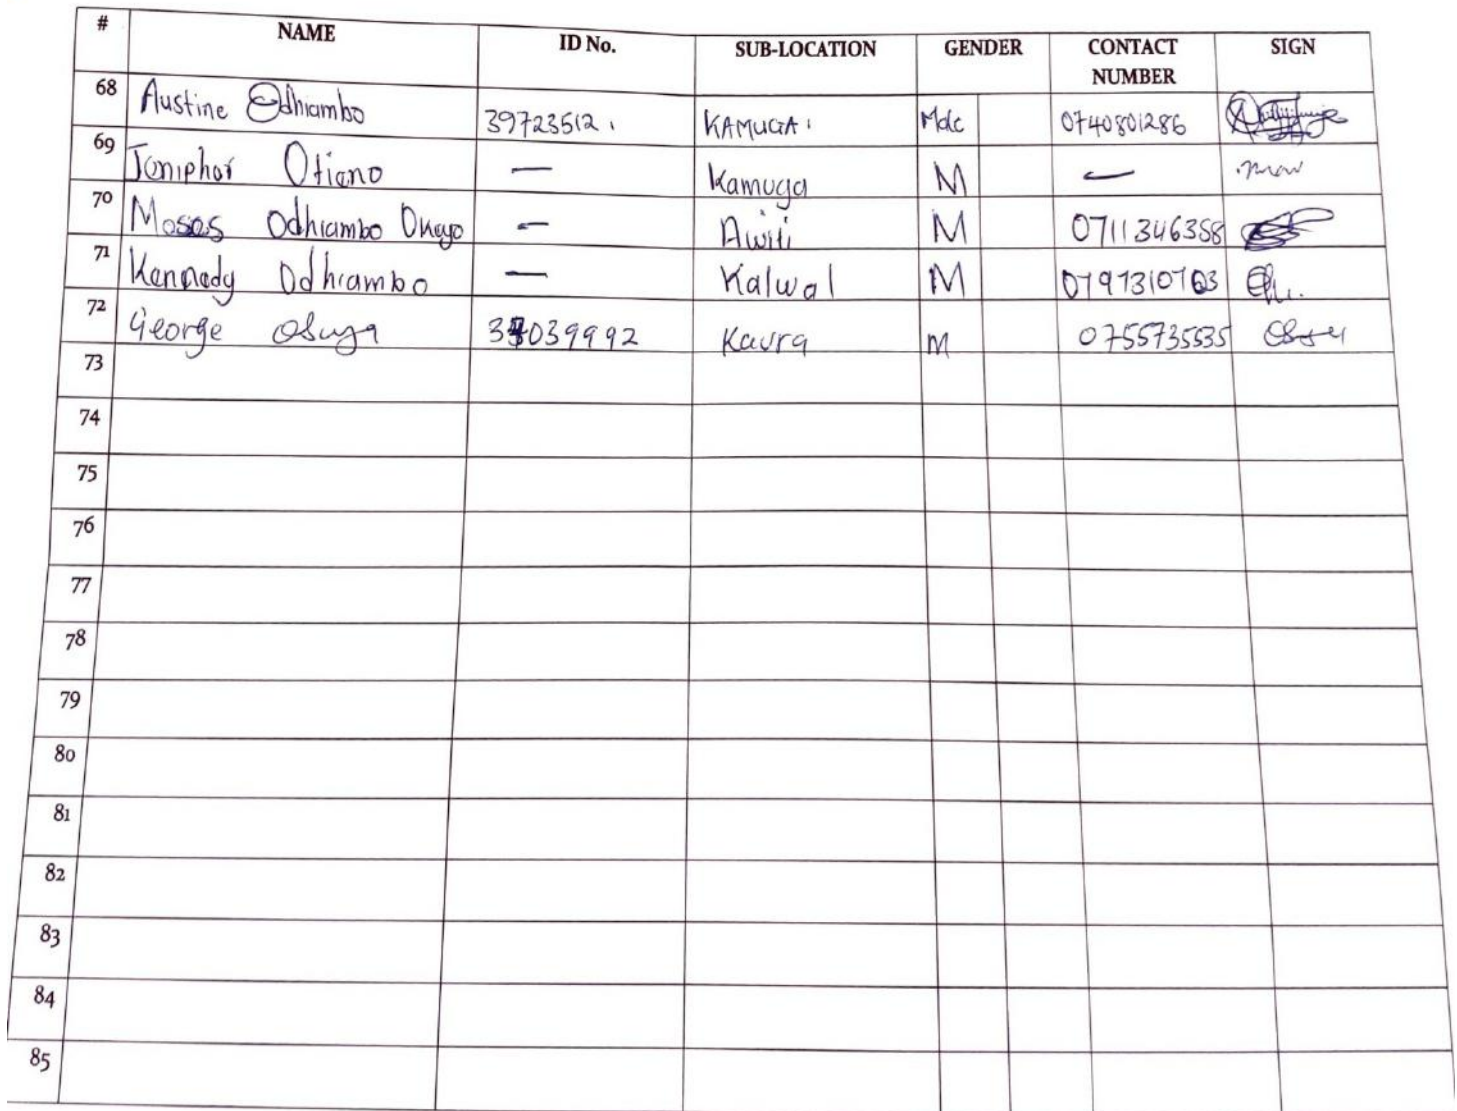 # NAME ID No. SUB-LOCATION GENDER CONTACT NUMBER SIGN
68 Austine Odhiambo 39723512. KAMUGA. Male 0740801286
69 Otieno — Kamuga M —
70 Moses Odhiambo Okeyo — Awiti M 0711346358
71 Kennedy Odhiambo — Kalwal M
72 George Osuga Kaura M 0755735535
73
74
75
76
77
78
79
80
81
82
83
84
85